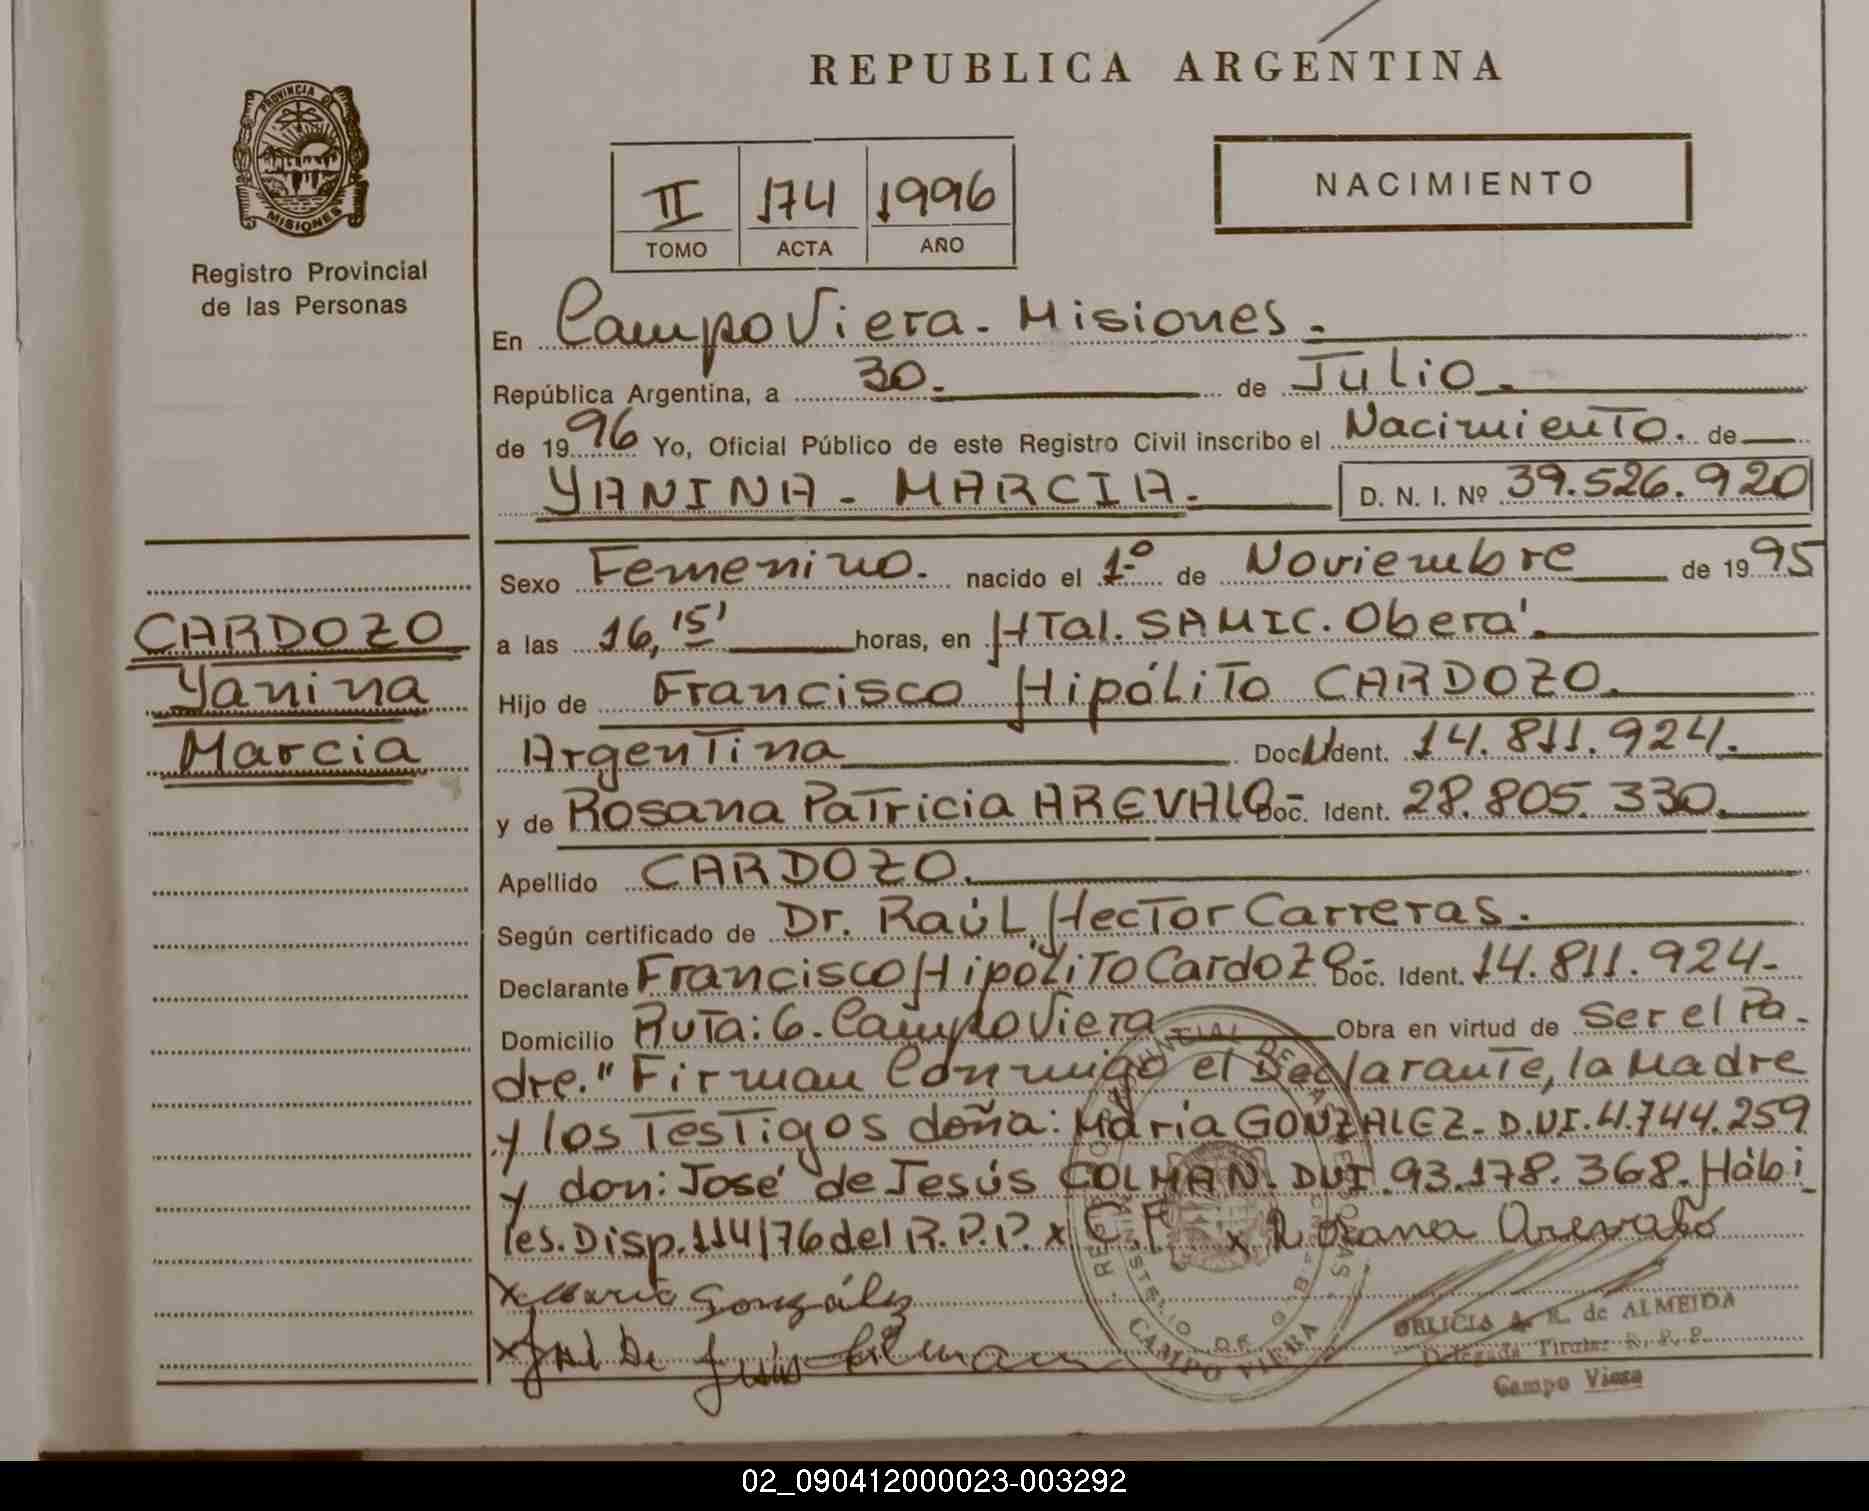 REPUBLICA ARGENTINA
PROVINCIA DE
MISIONES
Registro Provincial
de las Personas
II 174 1996
TOMO ACTA AÑO
NACIMIENTO
En Campo Viera - Misiones.
República Argentina, a 30. de Julio.
de 1996 Yo, Oficial Público de este Registro Civil inscribo el Nacimiento. de
YANINA - MARCIA. D. N. I. Nº 39.526.920
CARDOZO
Yanina
Marcia
Sexo Femenino. nacido el 1º de Noviembre de 1995
a las 16,15' horas, en HTal. SAMIC. Oberá.
Hijo de Francisco Hipólito CARDOZO.
Argentina Doc. Ident. 14.811.924.
y de Rosana Patricia AREVALO- Doc. Ident. 28.805.330.
Apellido CARDOZO.
Según certificado de Dr. Raúl Hector Carreras.
Declarante Francisco Hipólito Cardozo- Doc. Ident. 14.811.924-
Domicilio Ruta: 6. Campo Viera Obra en virtud de Ser el Pa-
dre." Firman Conmigo el Declarante, la Madre
y los Testigos doña: María GONZALEZ- D.NI. 4.744.259
y don: José de Jesús COLMAN. DNI. 93.178.368. Hábi
les. Disp. 114/76 del R.P.P. x C.F. x Rosana Arevalo
x Maria González
x José De Jesús Colman
CAMPO VIERA
A. R. de ALMEIDA
Delegada Titular R. P. P.
Campo Viera
02_090412000023-003292